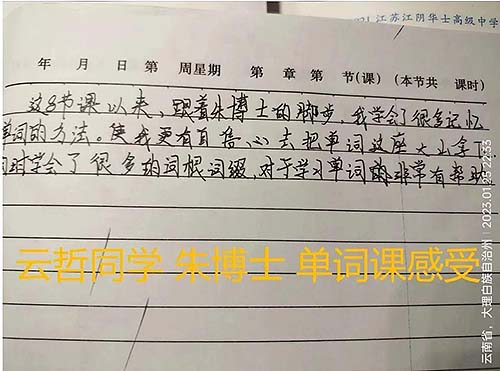 江苏江阴华士高级中学
年 月 日 第 周星期 第 章 第 节(课) (本节共 课时)
这8节课以来,跟着朱博士的脚步,我学会了很多记忆
单词的方法。使我更有自信心去把单词这座大山拿下
同时学会了很多的词根词缀,对于学习单词的非常有帮助
云哲同学 朱博士 单词课感受
云南省,大理白族自治州 | 2023.01.25 22:33